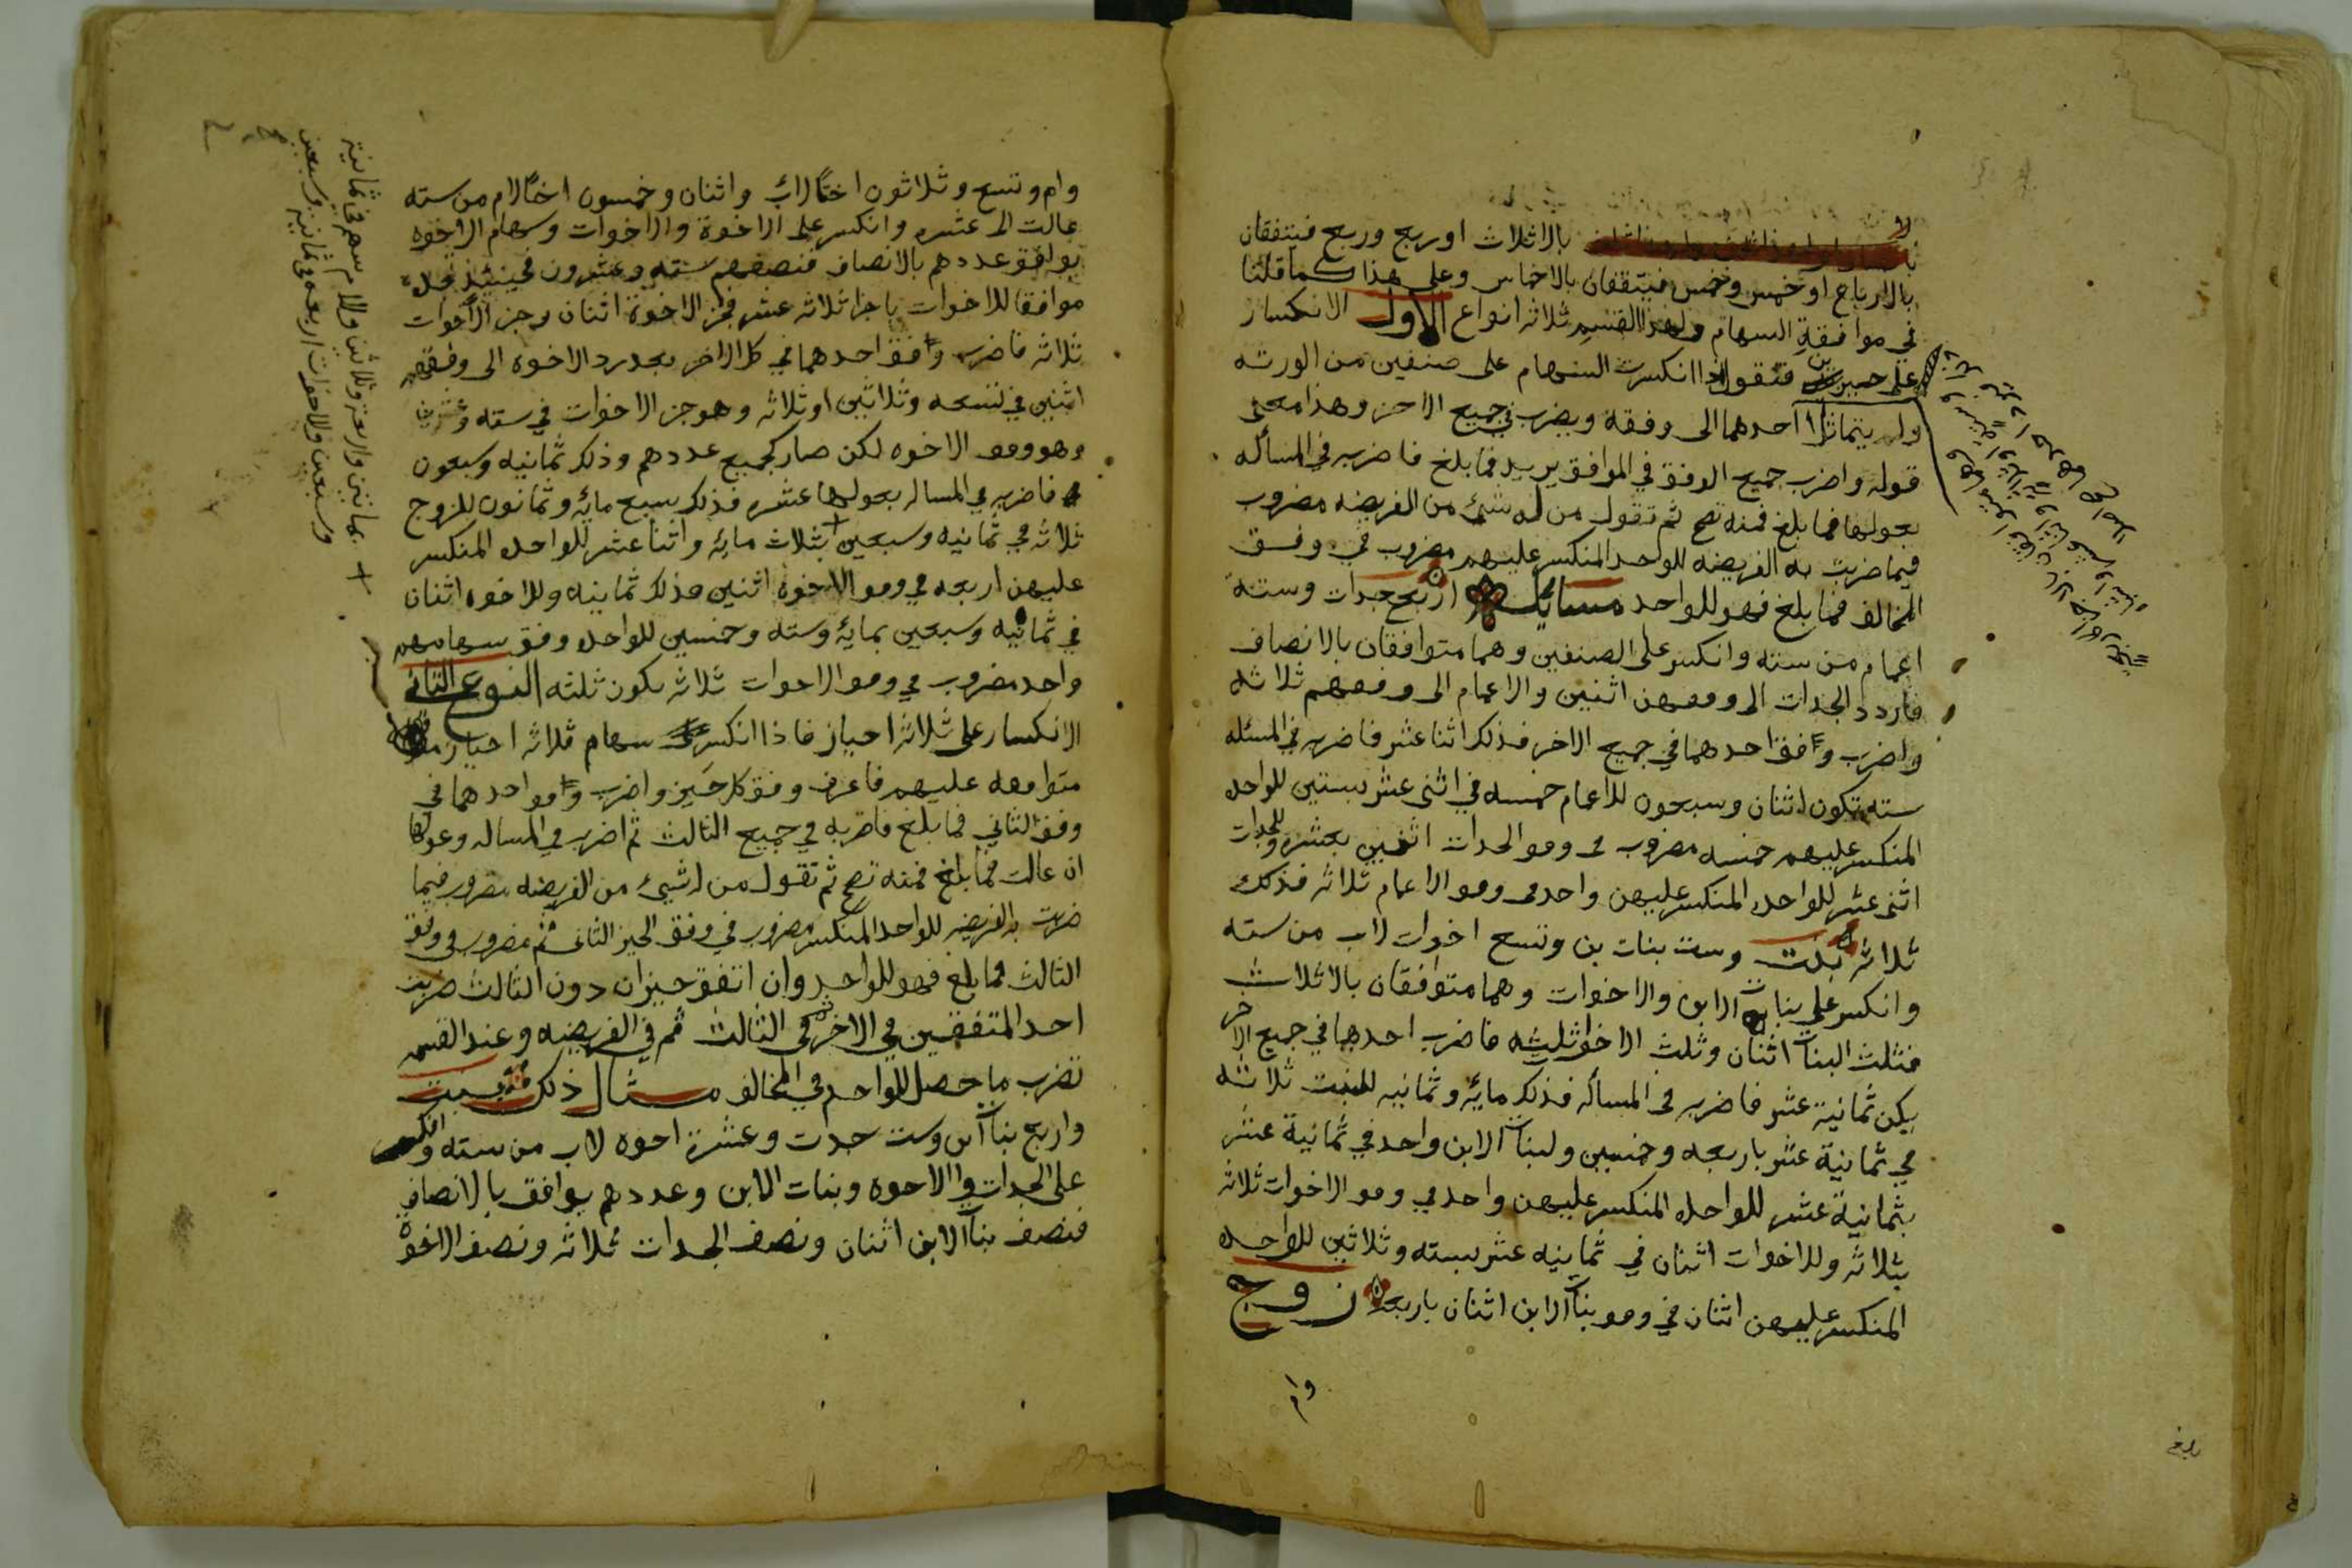 بالاثلاث او ربع وربع فيتفقان
بالارباع او خمس وخمس فيتفقان بالاخماس وعلى هذا كما قلنا
في موافقة السهام ولهذا القسم ثلاثه انواع الاول الانكسار
على حيزين فتقول اذا انكسرت السهام على صنفين من الورثه
ولم يتماثلا احدهما الى وفقه ويضرب في جميع الاخر وهذا معنى
قوله واضرب جميع الوفق في الموافق يريد فما بلغ فاضربه في المسأله
بعولها فما بلغ فمنه تصح ثم تقول من له شيء من الفريضه مضروب
فيما ضربت به الفريضه للواحد المنكسر عليهم مضروب في وفق
المخالف فما بلغ فهو للواحد مسايل اربع جدات وستة
اعمام من سته وانكسر على الصنفين وهما متوافقان بالانصاف
فاردد الجدات الى وفقهن اثنين والاعمام الى وفقهم ثلاثه
واضرب وفق احدهما في جميع الاخر فذلك اثنا عشر فاضربه في المسئله
سته تكون اثنان وسبعون للاعمام خمسه في اثنى عشر بستين للواحد
المنكسر عليهم خمسه مضروب في وفق الجدات اثنين بعشره وللجدات
اثنى عشر للواحده المنكسر عليهن واحد في وفق الاعمام ثلاثه فذلك
ثلاثه بنت وست بنات بن وتسع اخوات لاب من سته
وانكسر على بنات الابن والاخوات وهما متوافقان بالاثلاث
فثلث البنات اثنان وثلث الاخوات ثلثه فاضرب احدهما في جميع الاخر
يكن ثمانية عشر فاضربه في المسأله فذلك مايه وثمانيه للبنت ثلاثه
في ثمانية عشر باربعه وخمسين ولبنات الابن واحد في ثمانية عشر
بثمانية عشر للواحده المنكسر عليهن واحد في وفق الاخوات ثلاثه
بثلاثه وللاخوات اثنان في ثمانيه عشر بسته وثلاثين للواحده
المنكسر عليهن اثنان في وفق بنات الابن اثنان باربعه زوج
وام
بلغ
وام وتسع وثلاثون اختا لاب واثنان وخمسون اخا لام من سته
عالت الى عشره وانكسر على الاخوة والاخوات وسهام الاخوه
يوافق عددهم بالانصاف فنصفهم سته وعشرون فحينئذ
موافقا للاخوات باجزا ثلاثه عشر فجز الاخوة اثنان وجز الاخوات
ثلاثه فاضرب وفق احدهما في كل الاخر بعد رد الاخوه الى وفقهم
اثنين في تسعه وثلاثين او ثلاثه وهو جز الاخوات في سته وعشرين
وهو وفق الاخوه لكن صار كجميع عددهم وذلك ثمانيه وسبعون
فاضربه في المساله بعولها عشره فذلك سبع مايه وثمانون للزوج
ثلاثه في ثمانيه وسبعين + بثلاث مايه واثنا عشر للواحده المنكسر
عليهن اربعه في وفق الاخوه اثنين فذلك ثمانيه وللاخوه اثنان
في ثمانيه وسبعين بمايه وسته وخمسين للواحد وفق سهامهم
واحد مضروب في وفق الاخوات ثلاثه يكون ثلثه النوع الثاني
الانكسار على ثلاثه احياز فاذا انكسر سهام ثلاثه احياز
متوافقه عليهم فاعرف وفق كل حيز واضرب وفق احدهما في
وفق الثاني فما بلغ فاضربه في جميع الثالث ثم اضرب في المساله وعولها
ان عالت فما بلغ فمنه تصح ثم تقول من له شيء من الفريضه مضروب فيما
ضربت به الفريضه للواحد المنكسر مضروب في وفق الحيز الثاني ثم مضروب في وفق
الثالث فما بلغ فهو للواحد وان اتفق حيزان دون الثالث ضربت
احد المتفقين في الاخر ثم في الثالث ثم في الفريضه وعند القسمه
تضرب ما حصل للواحد في المخالف مثال ذلك بنت
واربع بنات ابن وست جدات وعشرة اخوه لاب من سته وانكسر
على الجدات والاخوه وبنات الابن وعددهم يوافق بالانصاف
فنصف بنات الابن اثنان ونصف الجدات ثلاثه ونصف الاخوة
بمائتين واربعة وثلاثين وللام سهم في ثمانية
وسبعين وللاخوات اربعه في ثمانيه وسبعين